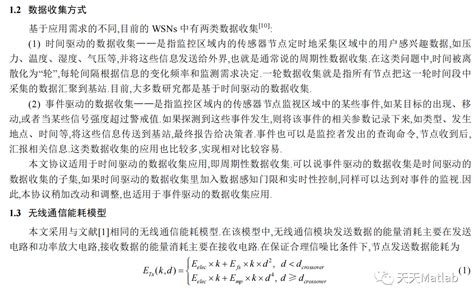 1.2 数据收集方式
基于应用需求的不同,目前的 WSNs 中有两类数据收集[10]:
(1) 时间驱动的数据收集——是指监控区域内的传感器节点定时地采集区域中的用户感兴趣数据,如压
力、温度、湿度、气压等,并将这些信息发送给外界,也就是通常说的周期性数据收集.在这类问题中,时间被离
散化为“轮”,每轮间隔根据信息的变化频率和监测需求决定.一轮数据收集就是指所有节点把这一轮时间段中
采集的数据汇聚到基站.目前,大多数研究都是基于时间驱动的数据收集.
(2) 事件驱动的数据收集——是指监控区域内的传感器节点监视区域中的某些事件,如某目标的出现、移
动,或者当某些信号强度超过警戒值.如果探测到这些事件发生,则将该事件的相关参数记录下来,如类型、发生
地点、时间等,将这些信息传送到基站,最终报告给决策者.事件也可以是监控者发出的查询命令,节点收到后,
汇报相关信息.这类数据收集的应用也比较多,实现相对比较容易.
本文协议适用于时间驱动的数据收集应用,即周期性数据收集.可以说事件驱动的数据收集是时间驱动的
数据收集的子集,如果时间驱动的数据收集里加入数据感知门限和实时性控制,同样可以达到对事件的监视.因
此,本协议稍加改动和调整,也适用于事件驱动的数据收集应用.
1.3 无线通信能耗模型
本文采用与文献[1]相同的无线通信能耗模型.在该模型中,无线通信模块发送数据的能量消耗主要在发送
电路和功率放大电路,接收数据的能量消耗主要在接收电路.在保证合理信噪比条件下,节点发送数据能耗为
E_Tx(k,d) = { E_elec × k + E_fs × k × d², d < d_crossover
E_elec × k + E_mp × k × d⁴, d ≥ d_crossover (1)
天天Matlab